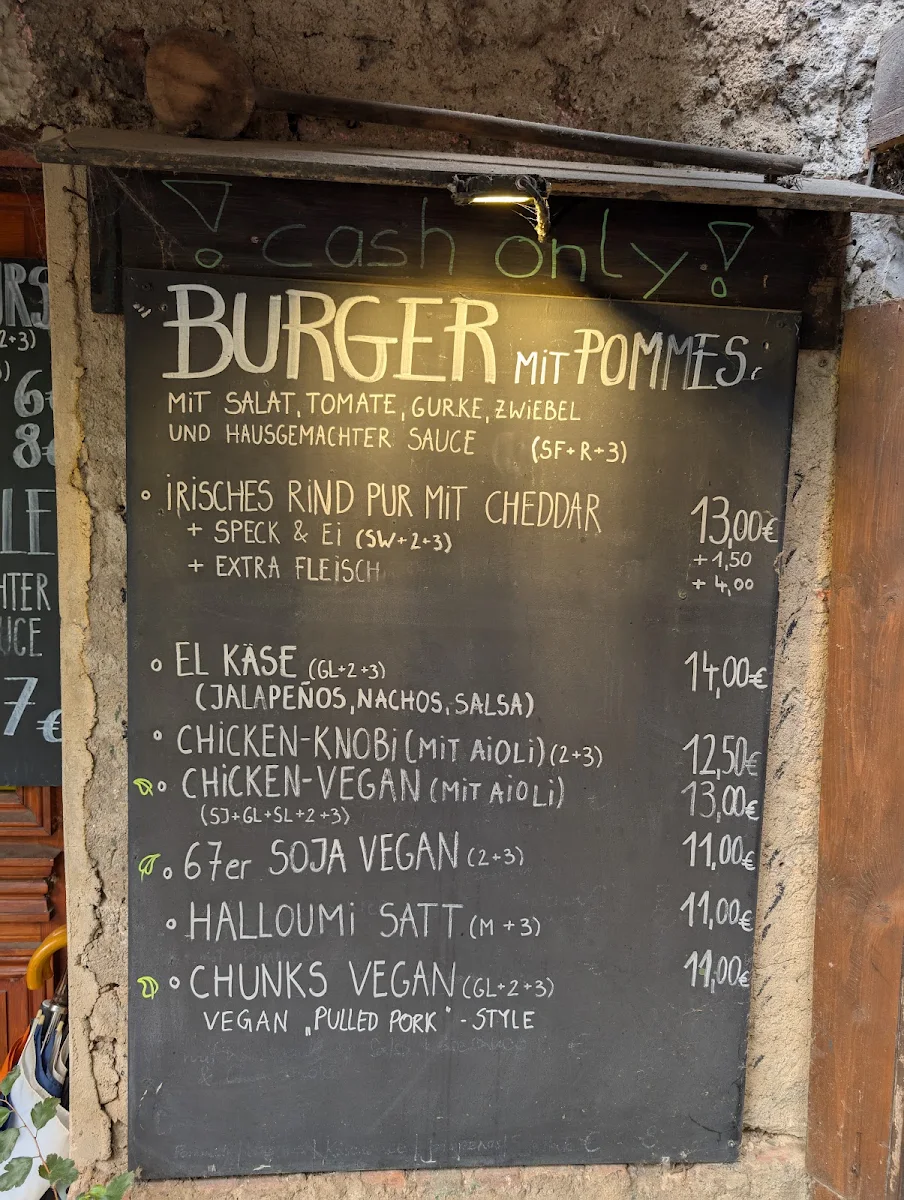 ! cash only !
BURGER MIT POMMES
MIT SALAT, TOMATE, GURKE, ZWIEBEL
UND HAUSGEMACHTER SAUCE (SF+R+3)
IRISCHES RIND PUR MIT CHEDDAR 13,00€
+ SPECK & Ei (SW+2+3) +1,50
+ EXTRA FLEISCH +4,00
EL KÄSE (GL+2+3) 14,00€
(JALAPEÑOS, NACHOS, SALSA)
CHICKEN-KNOBI (MIT AIOLI) (2+3) 12,50€
CHICKEN-VEGAN (MIT AIOLI) 13,00€
(SJ+GL+SL+2+3)
67er SOJA VEGAN (2+3) 11,00€
HALLOUMI SATT (M+3) 11,00€
CHUNKS VEGAN (GL+2+3) 11,00€
VEGAN „PULLED PORK" - STYLE